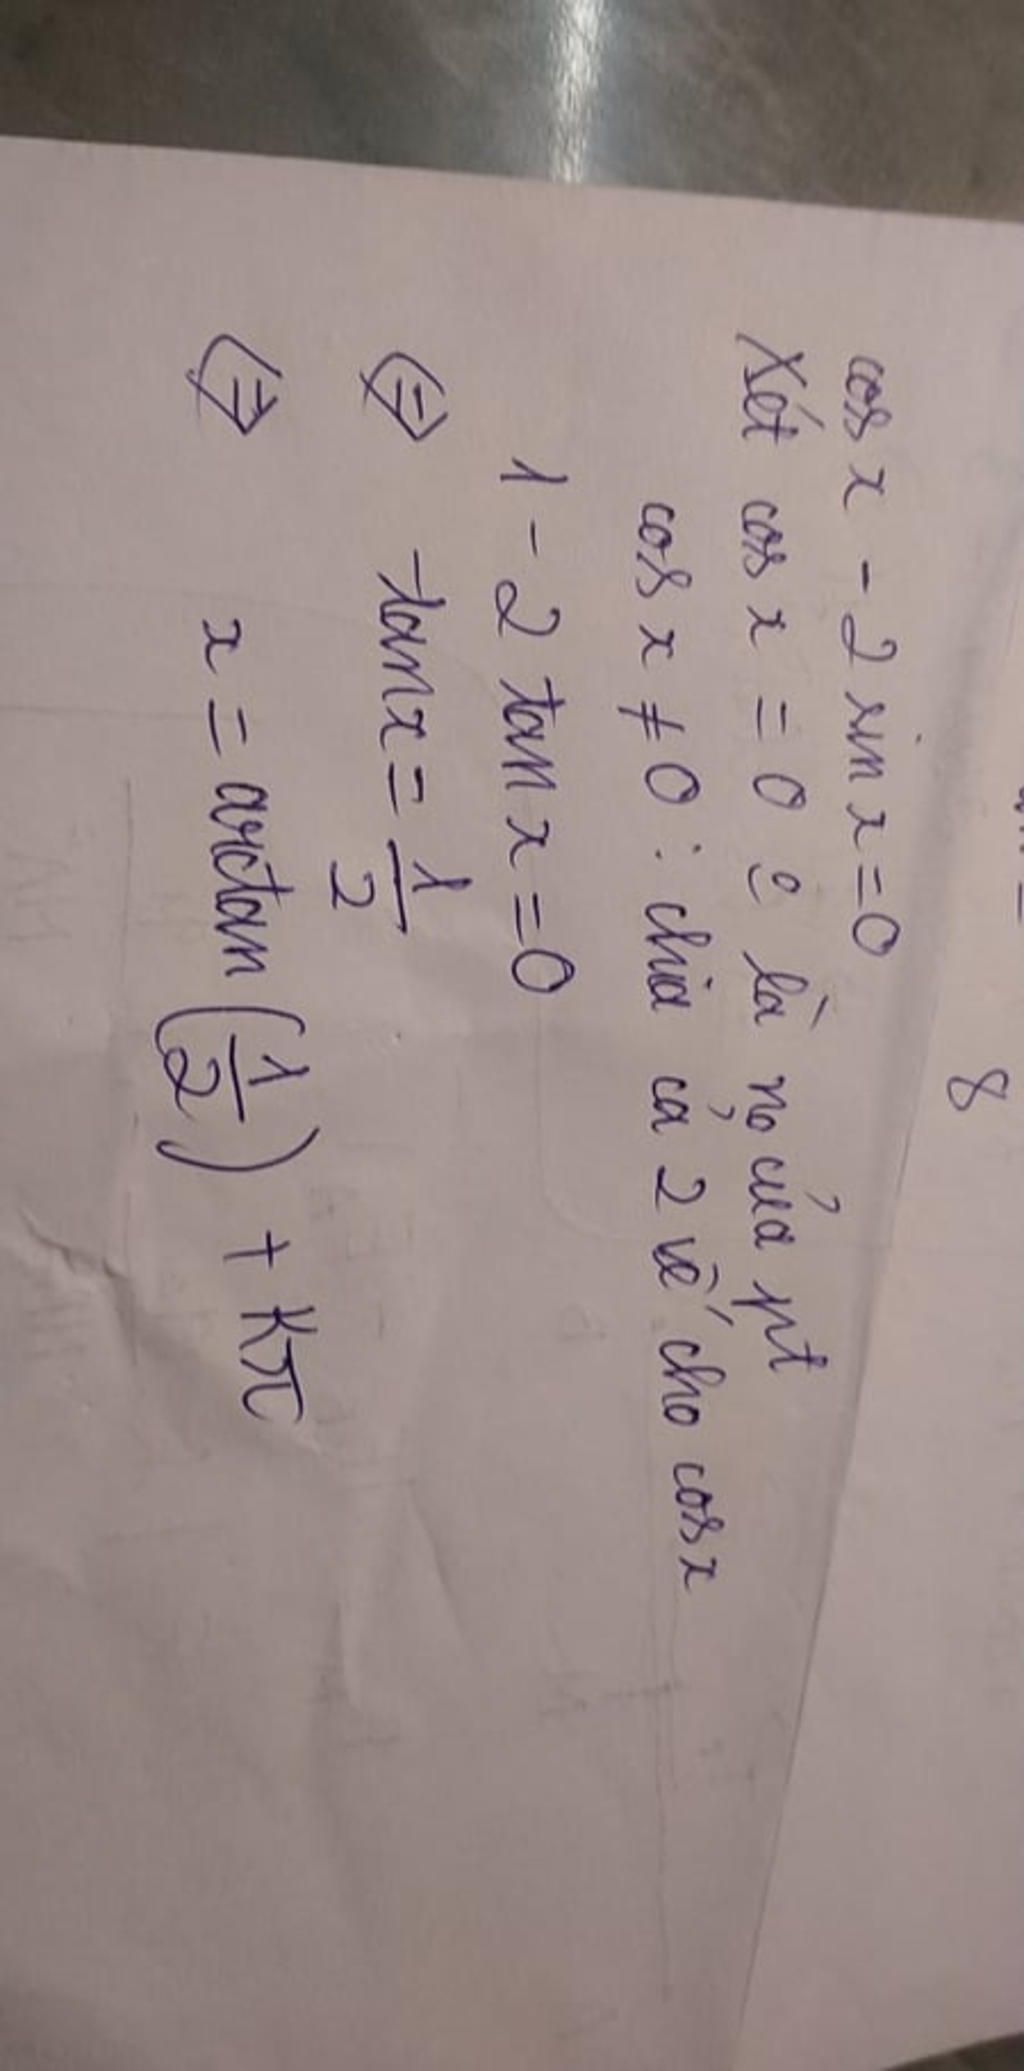 8
cos x - 2 sin x = 0
Xét cos x = 0 ⁰ là n⁰ của pt
cos x ≠ 0 : chia cả 2 vế cho cos x
1 - 2 tan x = 0
⇔ tan x = 1/2
⇔ x = arctan (1/2) + kπ